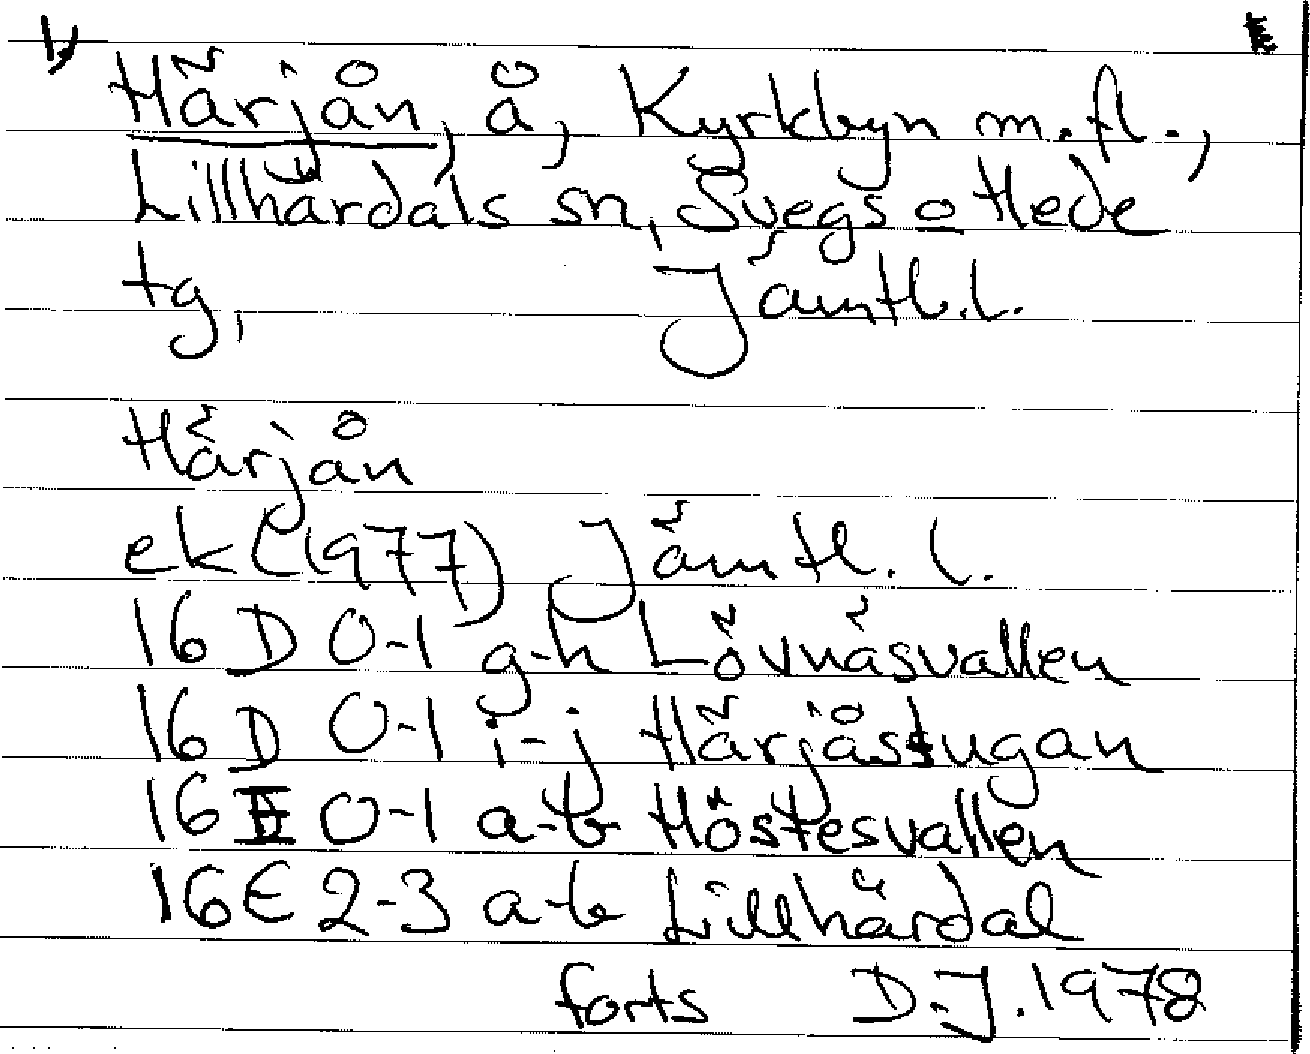 1)
Härjån, å, Kyrkbyn m.fl.,
Lillhärdals sn, Svegs o Hede
tg, Jämtl.l.
Härjån
ek (1977) Jämtl. l.
16 D 0-1 g-h Lövnäsvallen
16 D 0-1 i-j Härjåstugan
16 E 0-1 a-b Höstesvallen
16 E 2-3 a-b Lillhärdal
forts D.J. 1978